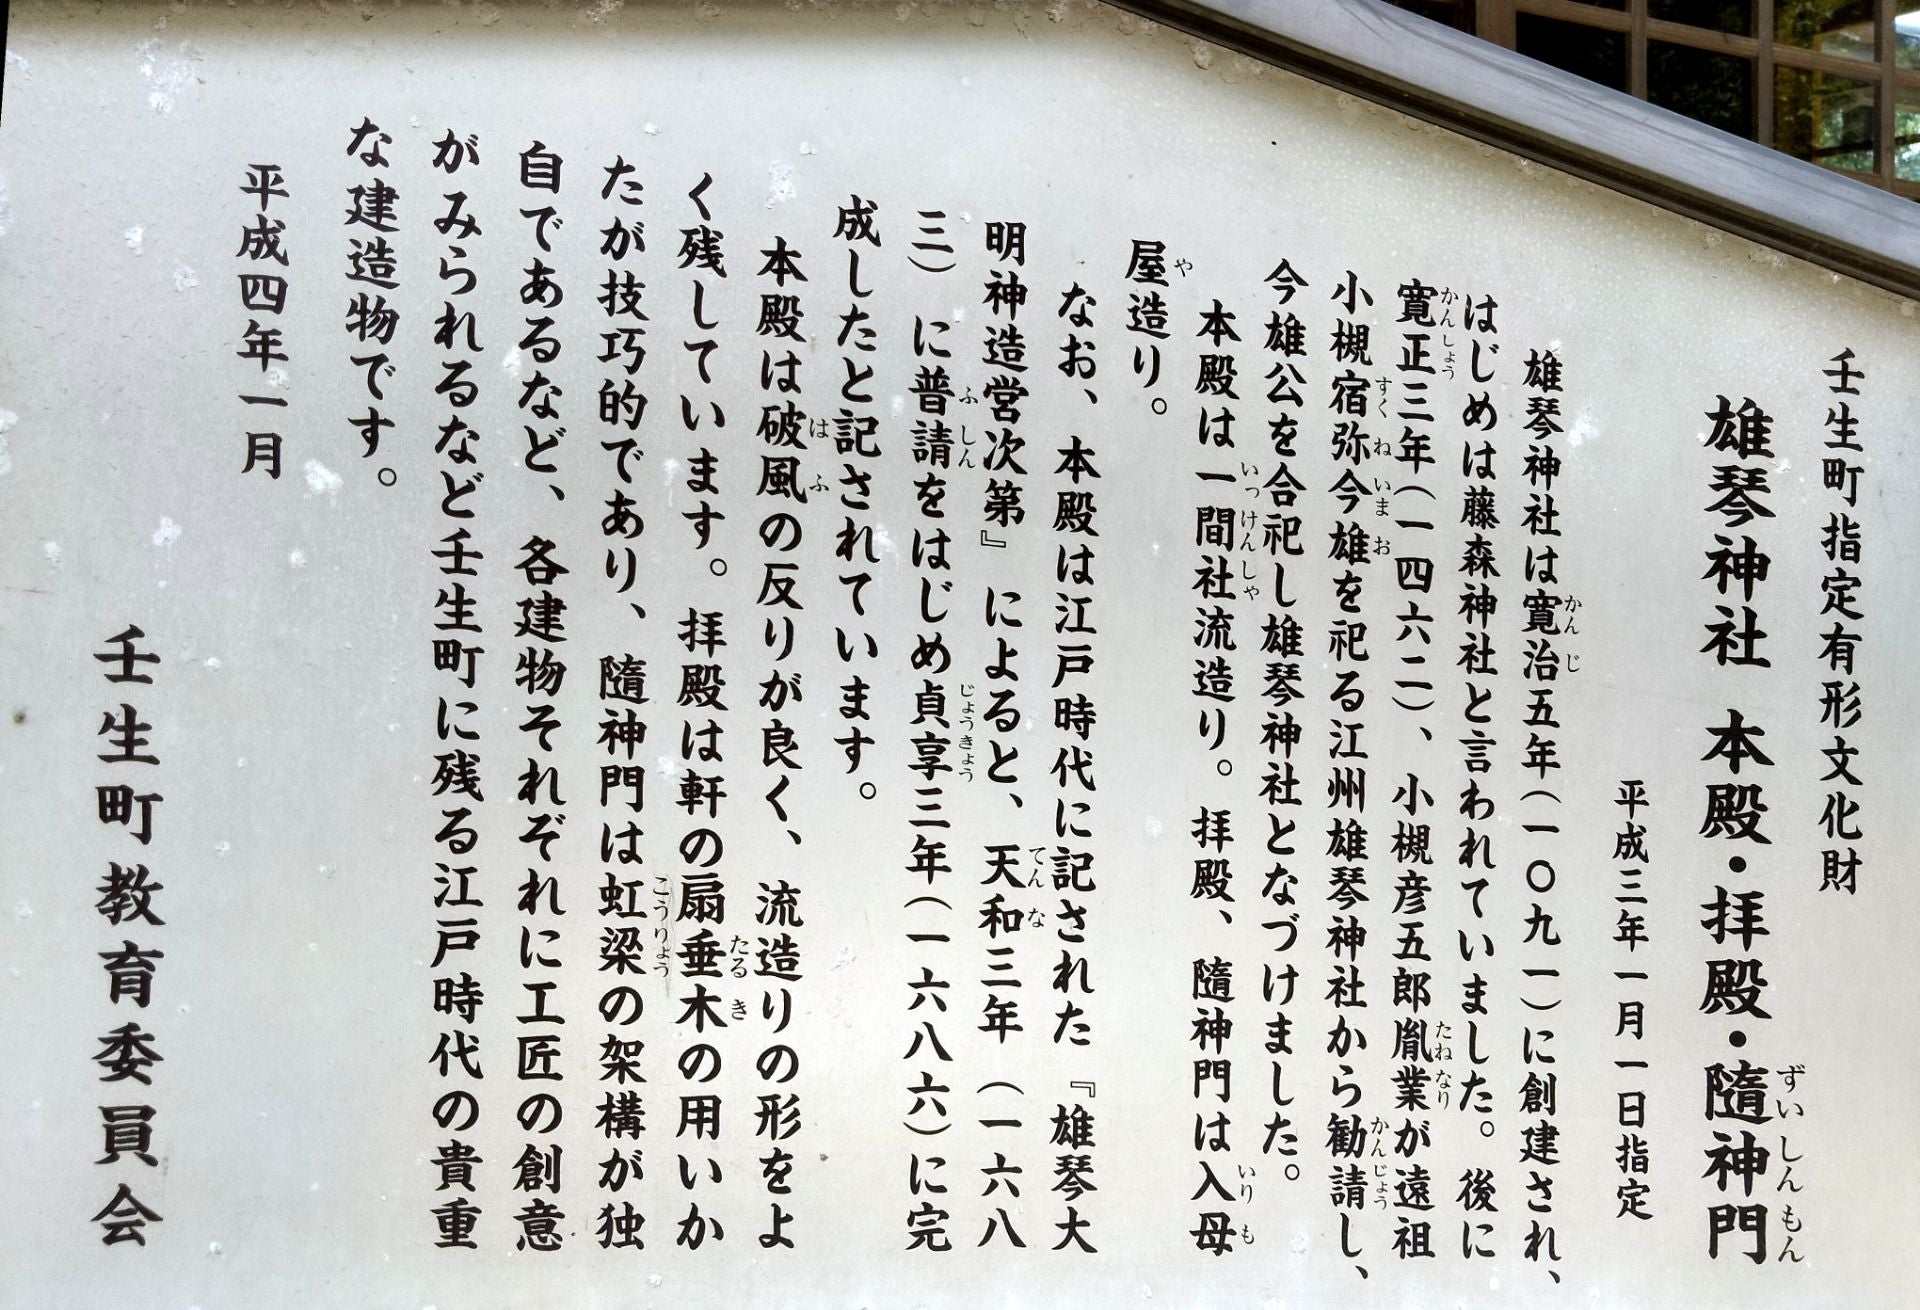 壬生町指定有形文化財
雄琴神社 本殿・拝殿・隨神門
平成三年一月一日指定
雄琴神社は寛治五年(一〇九一)に創建され、
はじめは藤森神社と言われていました。後に
寛正三年(一四六二)、小槻彦五郎胤業が遠祖
小槻宿弥今雄を祀る江州雄琴神社から勧請し、
今雄公を合祀し雄琴神社となづけました。
本殿は一間社流造り。拝殿、隨神門は入母
屋造り。
なお、本殿は江戸時代に記された『雄琴大
明神造営次第』によると、天和三年(一六八
三)に普請をはじめ貞享三年(一六八六)に完
成したと記されています。
本殿は破風の反りが良く、流造りの形をよ
く残しています。拝殿は軒の扇垂木の用いか
たが技巧的であり、隨神門は虹梁の架構が独
自であるなど、各建物それぞれに工匠の創意
がみられるなど壬生町に残る江戸時代の貴重
な建造物です。
平成四年一月
壬生町教育委員会